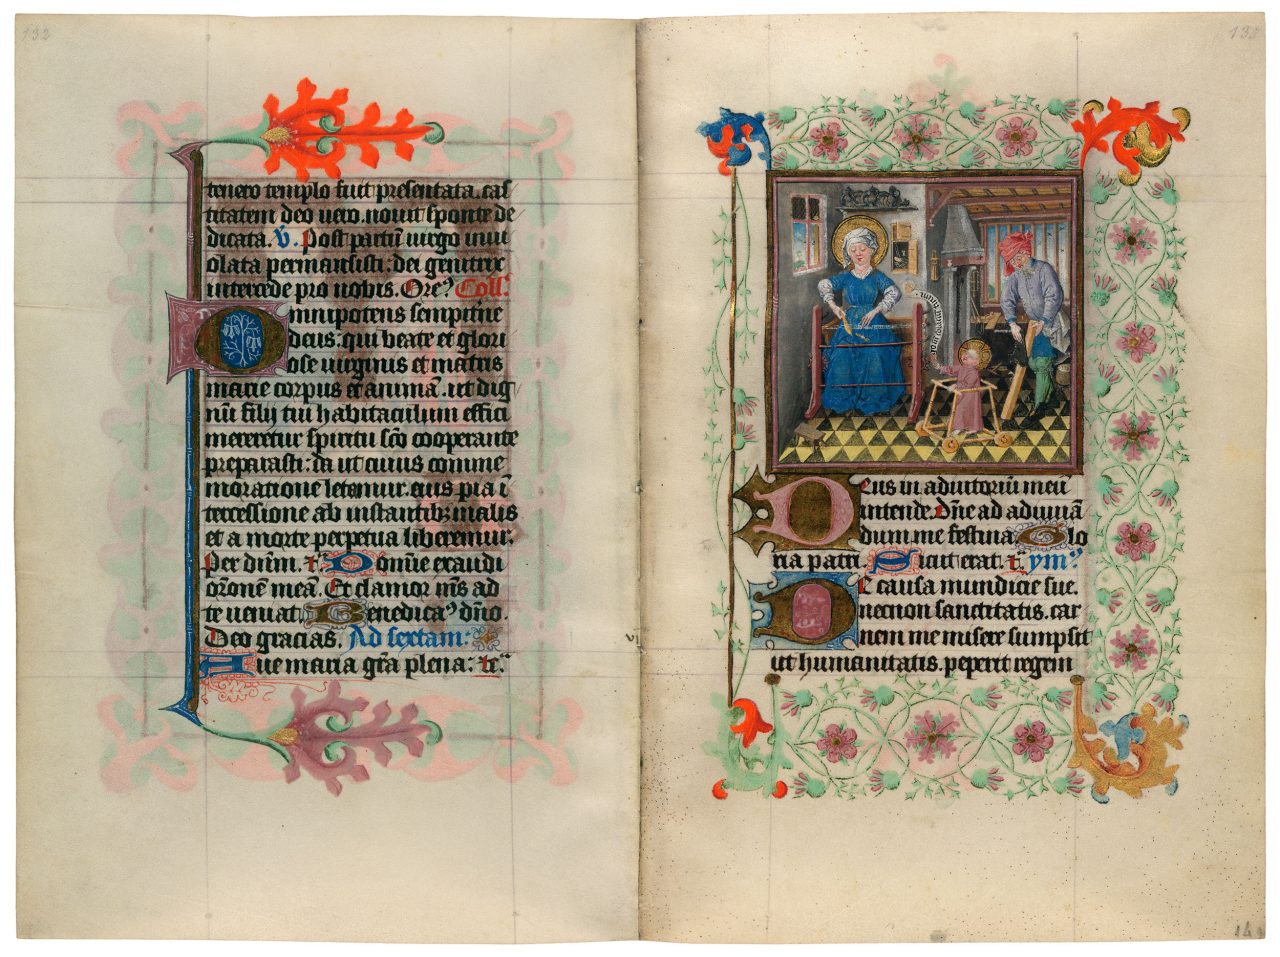 132
tenero templo fuit presentata. cas
titatem deo uero. nouit sponte de
dicata. V. Post partū uirgo inui
olata permansisti: dei genitrix
intercede pro nobis. Oreꝰ Coll'
Omnipotens sempitne
deus: qui beate et glori
ose uirginis et matris
marie corpus et animā. ut dig
nū filij tui habitaculum effici
mereretur spiritu sc̄o cooperante
preparasti: da ut cuius comme
moratione letamur. eius pia ī
tercessione ab instantibꝫ malis
et a morte perpetua liberemur.
Per dn̄m. t̄. Domine exaudi
oronem meā. Et clamor m̄s ad
te ueniat Benedicaꝰ dn̄o.
Deo gracias. Ad sextam:
Aue maria grā plena: tc̄.
133
Deus in adiutoriū meū
intende. Dn̄e ad adiuuā
dum me festina Glo
ria patri. Sicut erat. t̄. ymꝰ
De causa mundicie sue.
necnon sanctitatis. car
nem me misere sumpsit
ut humanitatis. peperit regem
vi
14